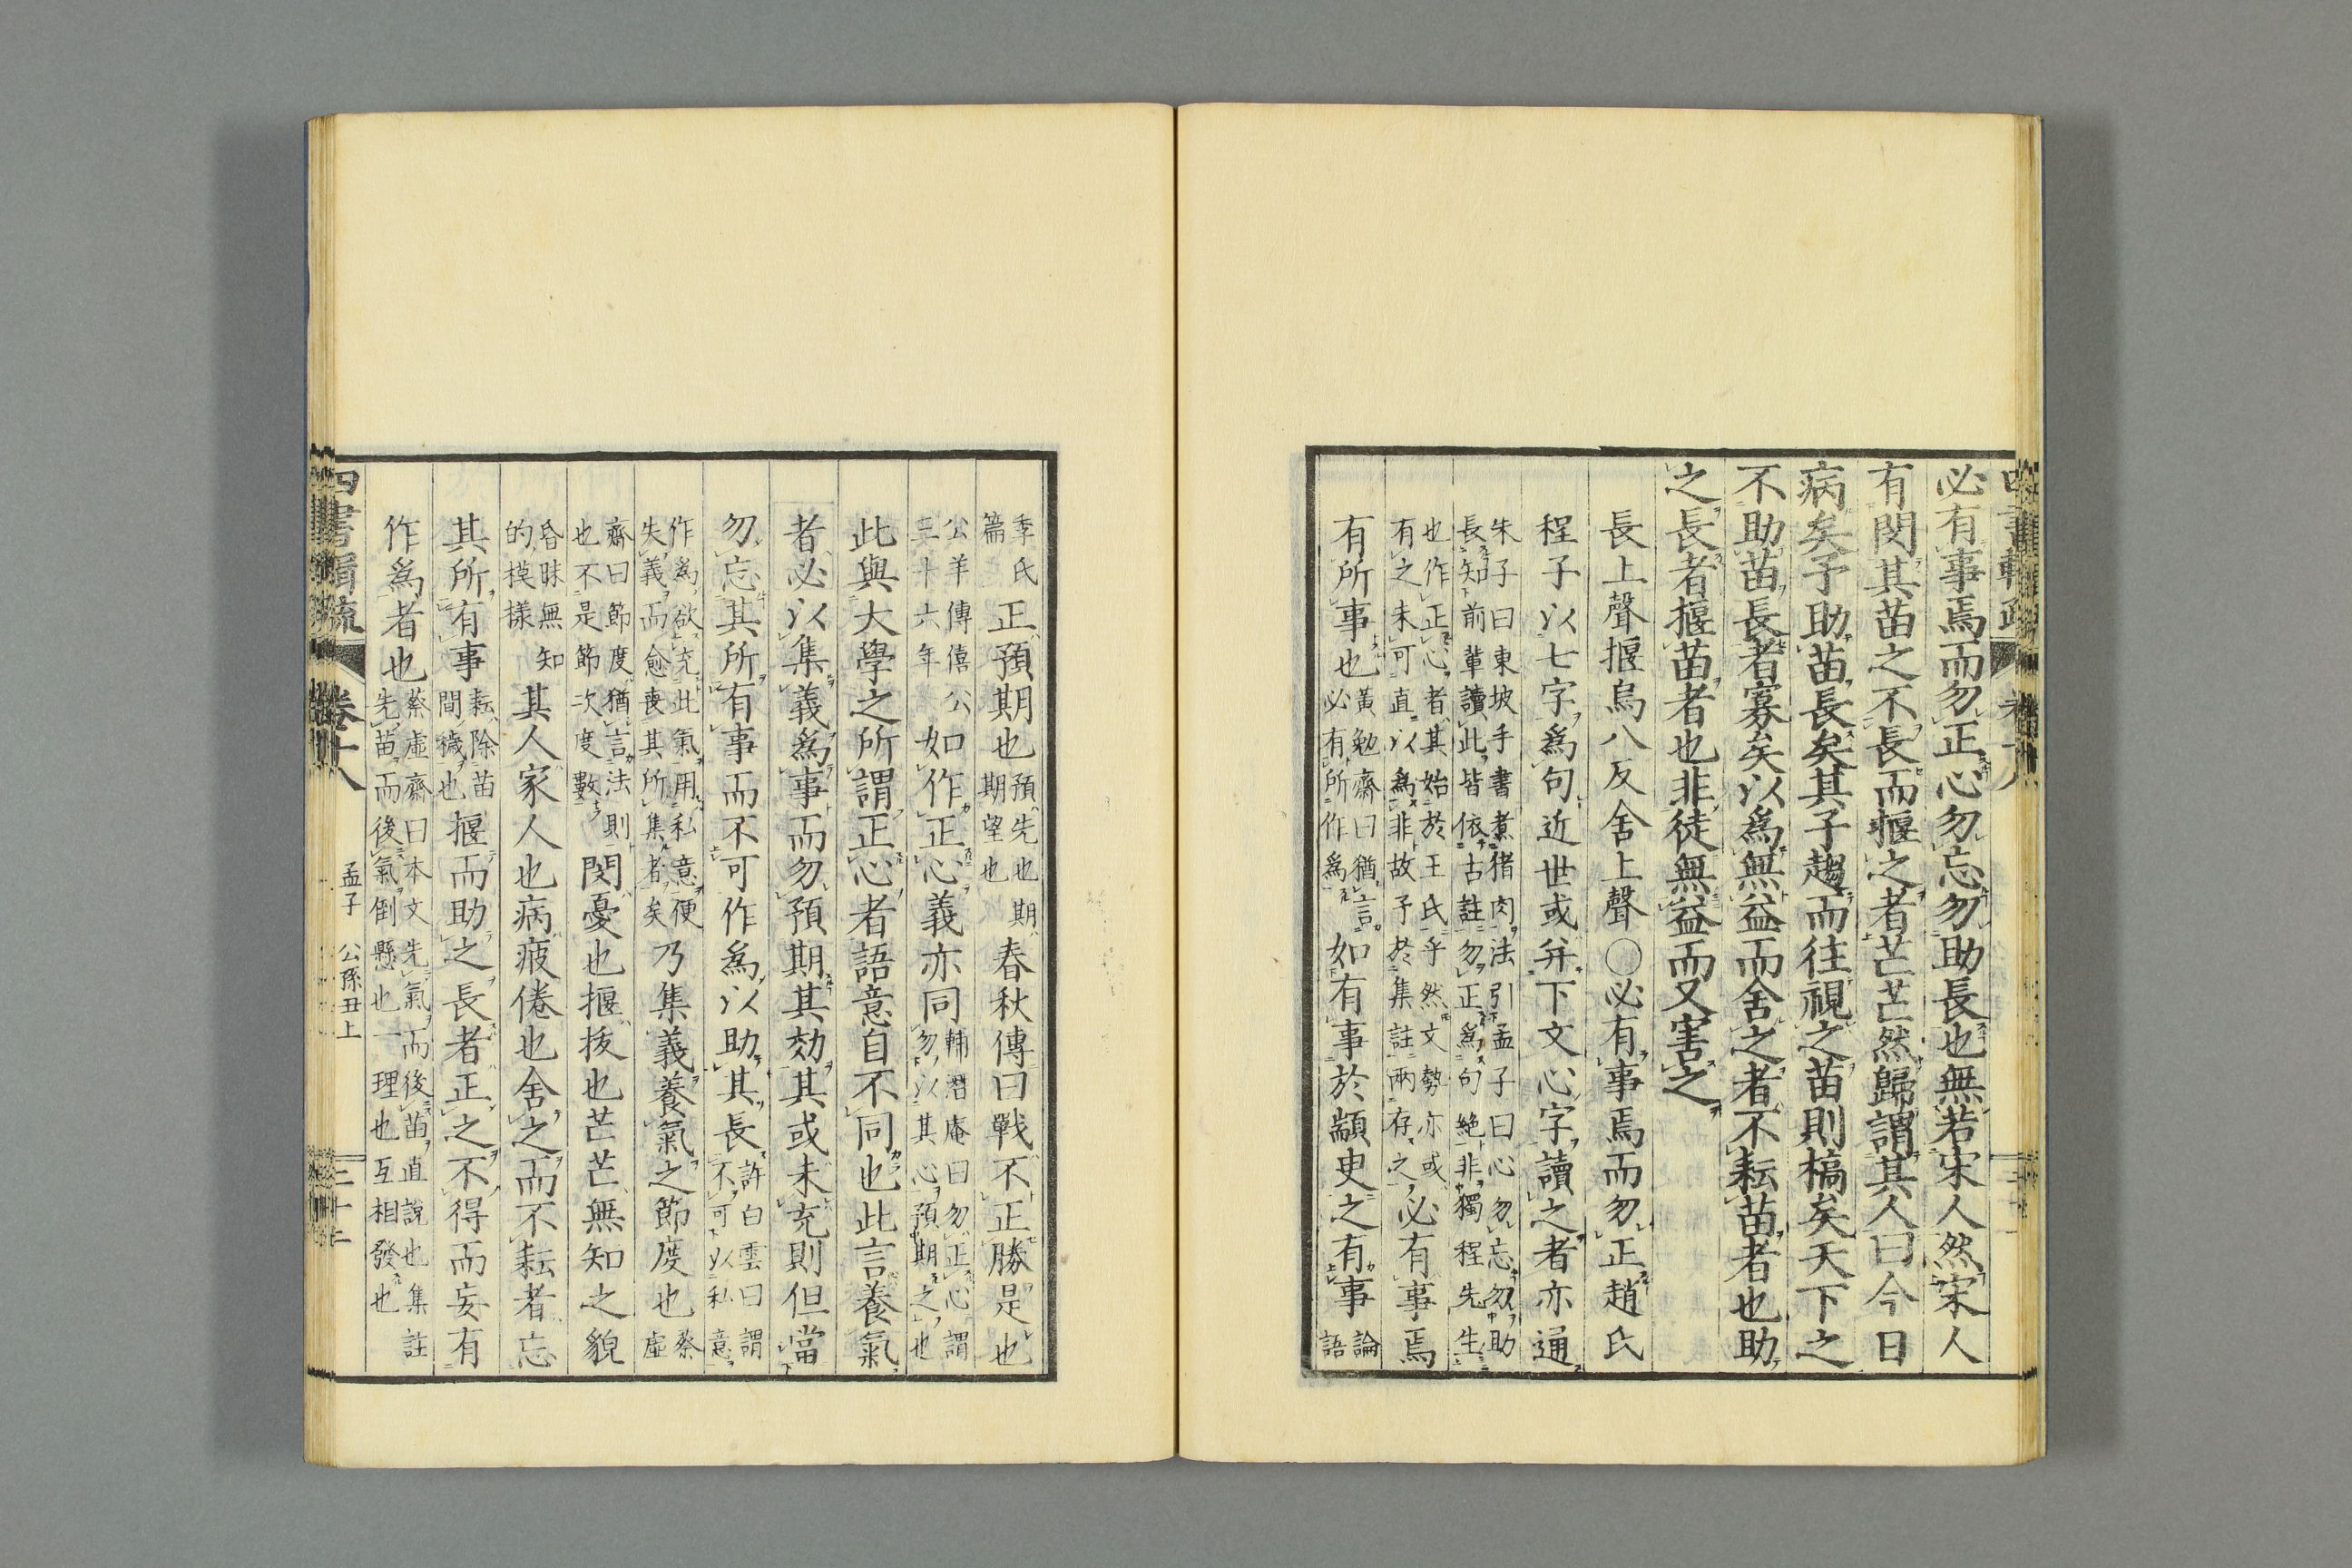 必有事焉而勿正心勿忘勿助長也無若宋人然宋人
有閔其苗之不長而揠之者芒芒然歸謂其人曰今日
病矣予助苗長矣其子趨而往視之苗則槁矣天下之
不助苗長者寡矣以爲無益而舍之者不耘苗者也助
之長者揠苗者也非徒無益而又害之
長上聲揠烏八反舍上聲○必有事焉而勿正趙氏
程子以七字爲句近世或并下文心字讀之者亦通
朱子曰東坡手書煮猪肉法引孟子曰心勿忘勿助
長知前輩讀此皆依古註勿正爲句絶非獨程先生
也作正心者其始於王氏乎然文勢亦或
有之未可直以爲非故予於集註兩存之必有事焉
有所事也黃勉齋曰猶言
必有所作爲如有事於顓臾之有事論
語
季氏
篇正預期也預先也期
期望也春秋傳曰戰不正勝是也
公羊傳僖公
二十六年如作正心義亦同輔潛庵曰勿正心謂
勿以其心預期之也
此與大學之所謂正心者語意自不同也此言養氣
者必以集義爲事而勿預期其効其或未充則但當
勿忘其所有事而不可作爲以助其長許白雲曰謂
不可以私意
作爲欲充此氣用私意便
失義而愈喪其所集者矣乃集義養氣之節度也蔡
虛
齋曰節度猶言法則
也不是節次度數閔憂也揠拔也芒芒無知之貌
昏昧無知
的模樣其人家人也病疲倦也舍之而不耘者忘
其所有事耘除苗
間穢也揠而助之長者正之不得而妄有
作爲者也蔡虛齋曰本文先氣而後苗直說也集註
先苗而後氣倒懸也一理也互相發也
四書輯疏 卷十八 孟子 公孫丑上 三十二